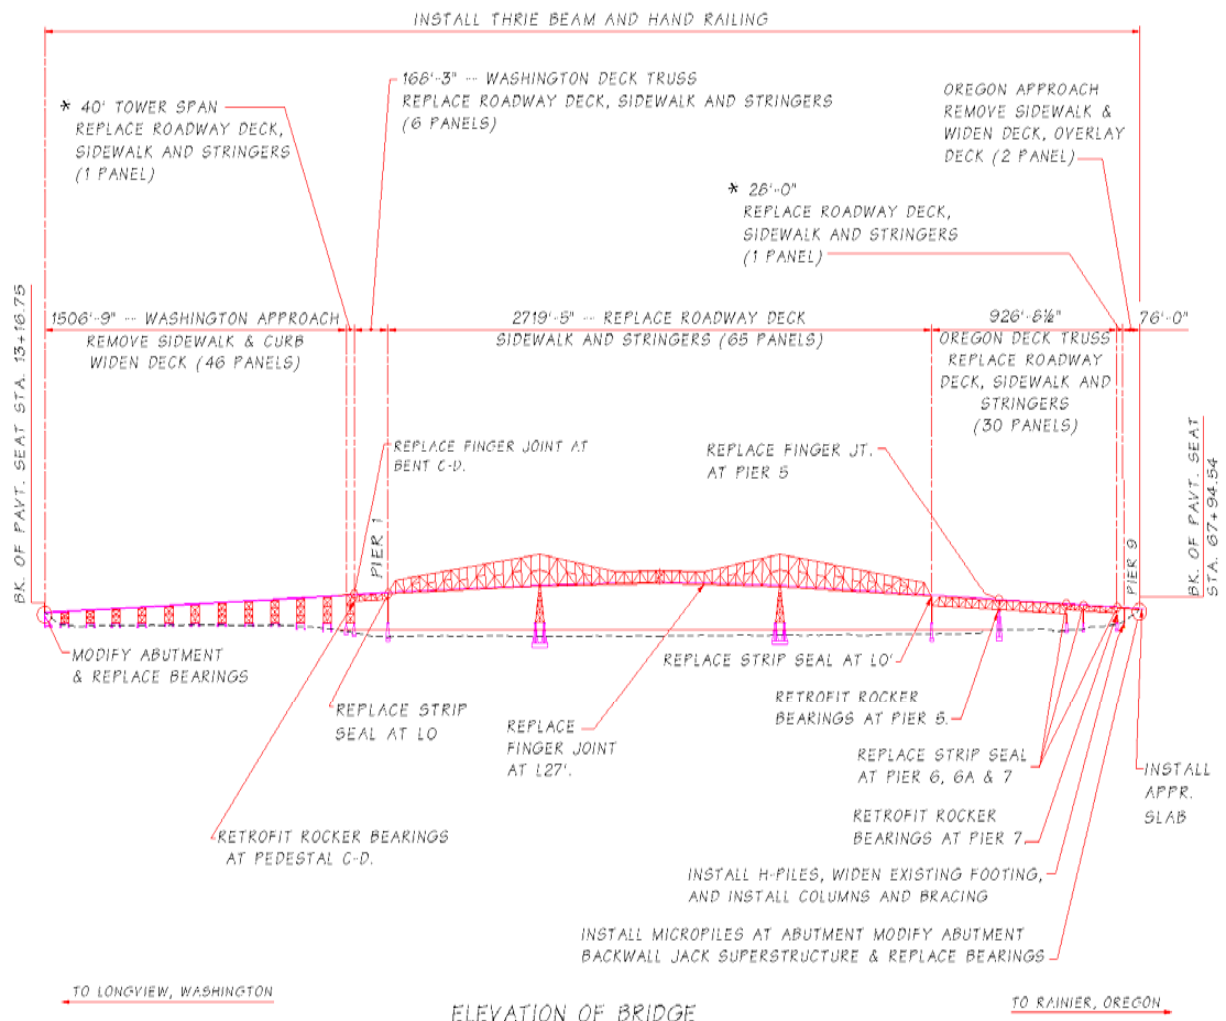 INSTALL THRIE BEAM AND HAND RAILING
166'-3" -- WASHINGTON DECK TRUSS
REPLACE ROADWAY DECK, SIDEWALK AND STRINGERS
(6 PANELS)
* 40' TOWER SPAN
REPLACE ROADWAY DECK,
SIDEWALK AND STRINGERS
(1 PANEL)
OREGON APPROACH
REMOVE SIDEWALK &
WIDEN DECK, OVERLAY
DECK (2 PANEL)
* 26'-0"
REPLACE ROADWAY DECK,
SIDEWALK AND STRINGERS
(1 PANEL)
BK. OF PAVT. SEAT STA. 13+16.75
1506'-9" -- WASHINGTON APPROACH
REMOVE SIDEWALK & CURB
WIDEN DECK (46 PANELS)
2719'-5" -- REPLACE ROADWAY DECK
SIDEWALK AND STRINGERS (65 PANELS)
926'-8½"
OREGON DECK TRUSS
REPLACE ROADWAY
DECK, SIDEWALK AND
STRINGERS
(30 PANELS)
76'-0"
REPLACE FINGER JOINT AT
BENT C-D.
REPLACE FINGER JT.
AT PIER 5
PIER 1
PIER 9
BK. OF PAVT. SEAT
STA. 67+94.54
MODIFY ABUTMENT
& REPLACE BEARINGS
REPLACE STRIP
SEAL AT LO
REPLACE
FINGER JOINT
AT L27'.
REPLACE STRIP SEAL AT LO'
RETROFIT ROCKER
BEARINGS AT PIER 5.
REPLACE STRIP SEAL
AT PIER 6, 6A & 7
INSTALL
APPR.
SLAB
RETROFIT ROCKER BEARINGS
AT PEDESTAL C-D.
RETROFIT ROCKER
BEARINGS AT PIER 7
INSTALL H-PILES, WIDEN EXISTING FOOTING,
AND INSTALL COLUMNS AND BRACING
INSTALL MICROPILES AT ABUTMENT MODIFY ABUTMENT
BACKWALL JACK SUPERSTRUCTURE & REPLACE BEARINGS
TO LONGVIEW, WASHINGTON
ELEVATION OF BRIDGE
TO RAINIER, OREGON